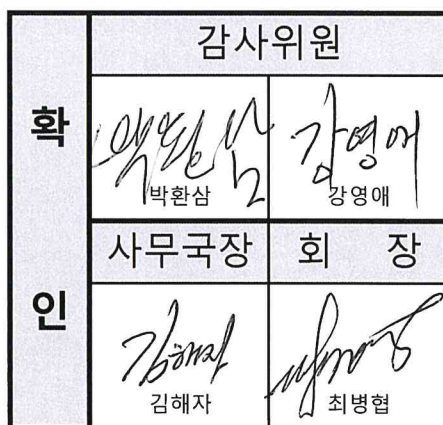 확 인
감사위원
박환삼 강영애
사무국장 회 장
김해자 최병협